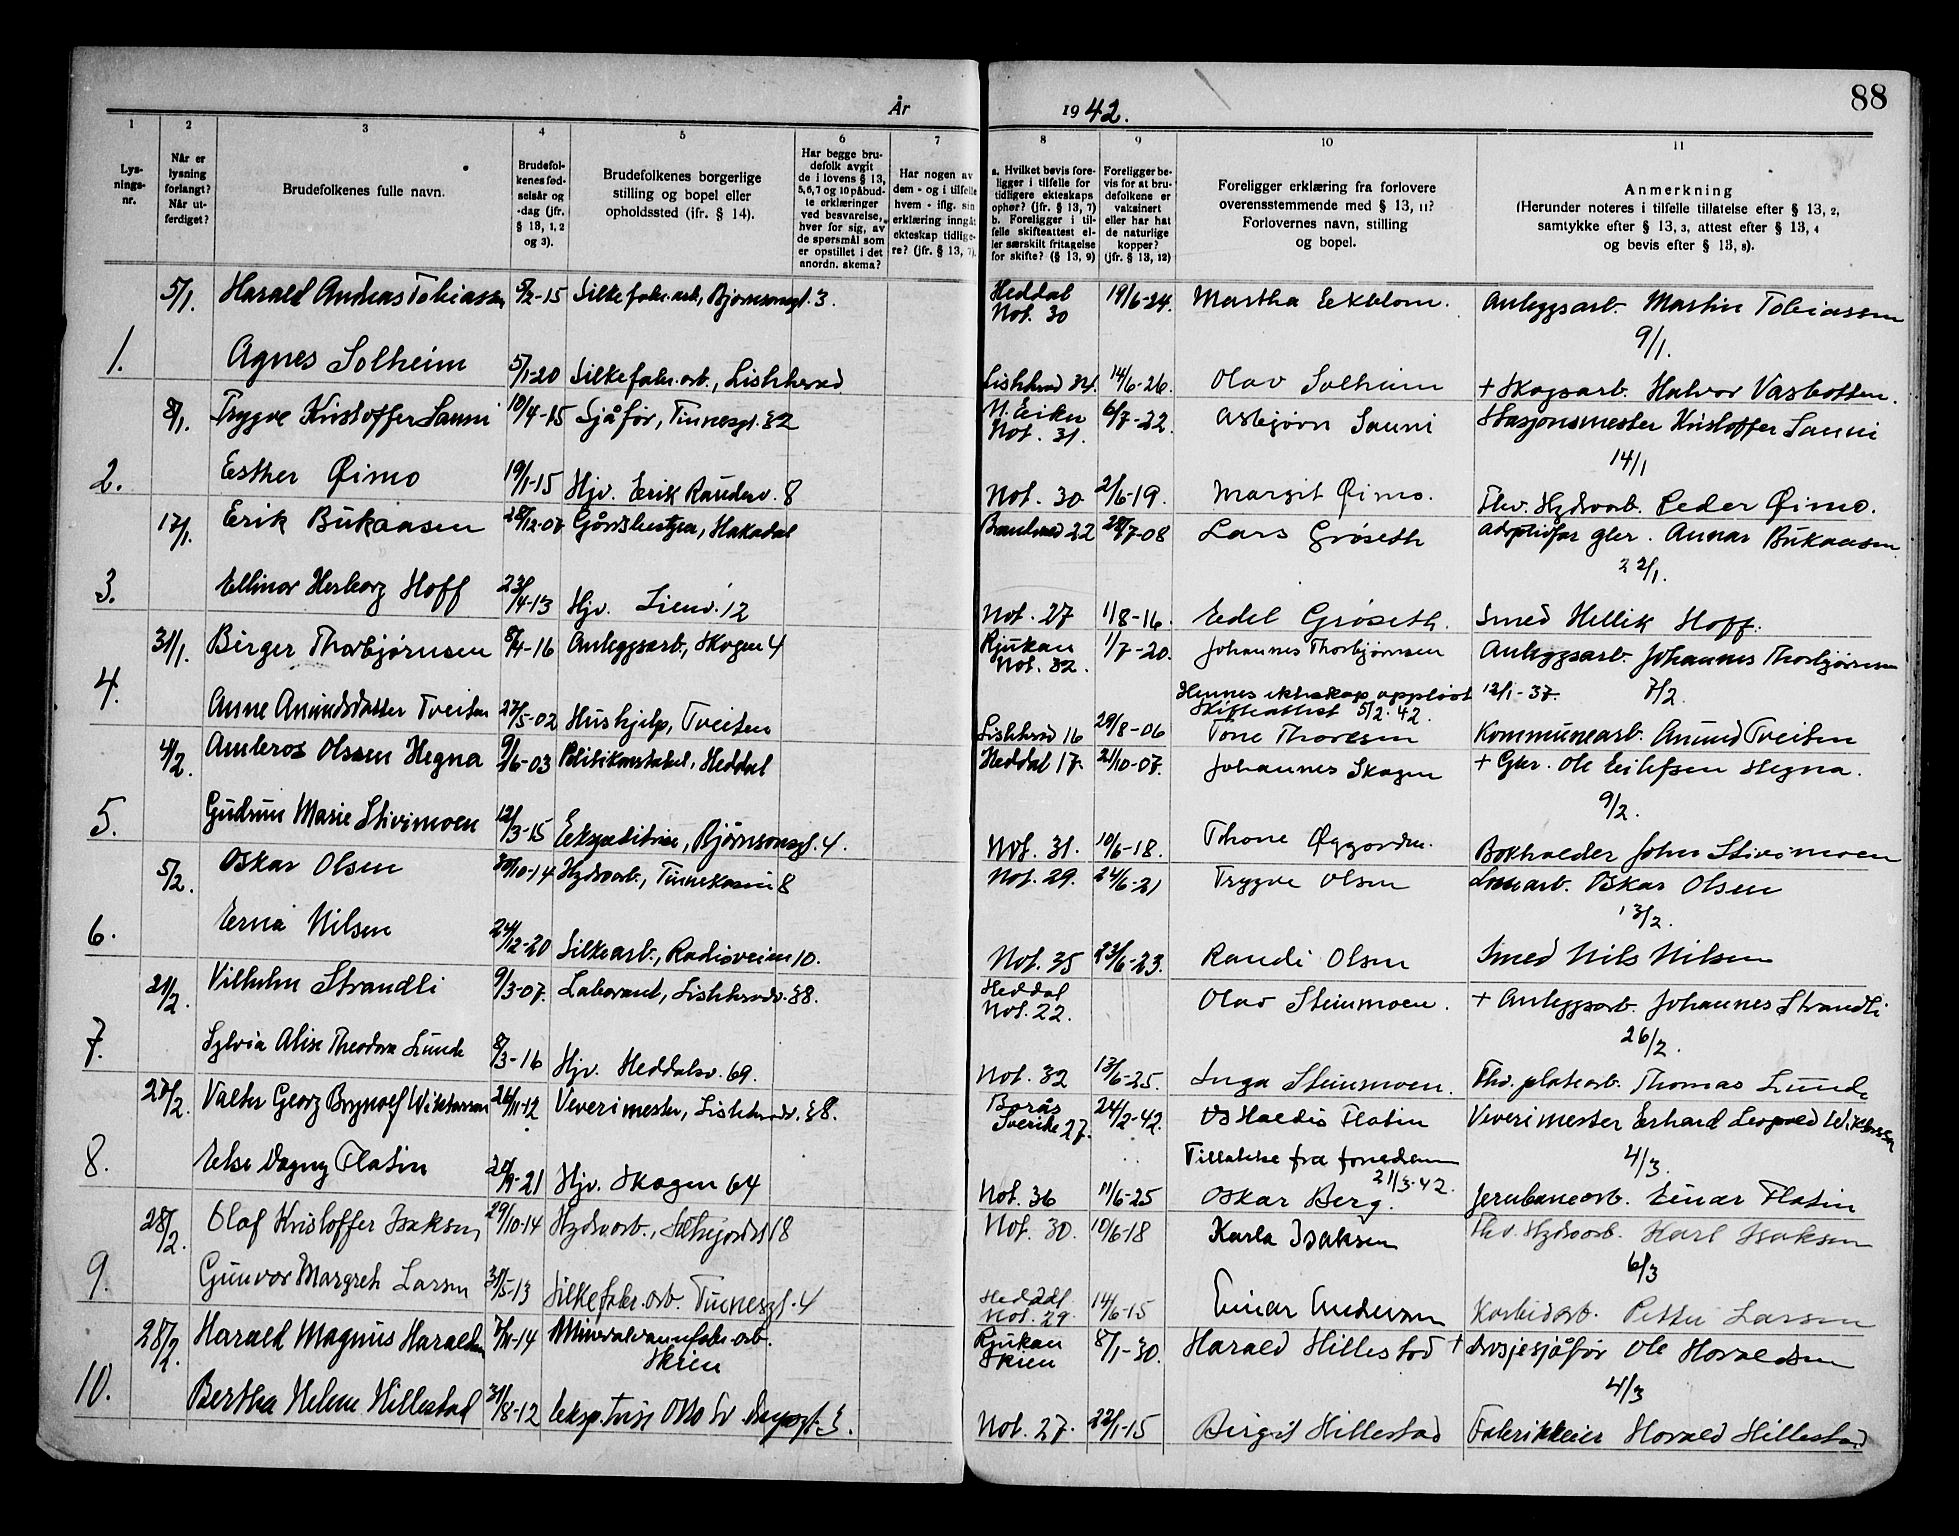 88
År 1942.
1 2 3 4 5 6 7 8 9 10 11
Lys-
nings-
nr.
Når er
lysning
forlangt?
Når ut-
ferdiget?
Brudefolkenes fulle navn.
Brudefol-
kenes fød-
selsår og
-dag (jfr.
§ 13, 1, 2
og 3).
Brudefolkenes borgerlige
stilling og bopel eller
opholdssted (ifr. § 14).
Har begge bru-
defolk avgit
de i lovens § 13,
5,6,7 og 10 påbud-
te erklæringer
ved besvarelse,
hver for sig, av
de spørsmål som
er opstillet i det
anordn. skema?
Har nogen av
dem - og i tilfelle
hvem - iflg. sin
erklæring inngåt
ekteskap tidlige-
re? (jfr. § 13, 7).
a. Hvilket bevis fore-
ligger i tilfelle for
tidligere ekteskaps
opher? (jfr. § 13, 7)
b. Foreligger i til-
felle skifteattest el-
ler særskilt fritagelse
for skifte? (§ 13, 9)
Foreligger be-
vis for at bru-
defolkene er
vaksinert
eller har hat
de naturlige
kopper?
(jfr. § 13, 12)
Foreligger erklæring fra forlovere
overensstemmende med § 13, 11?
Forlovernes navn, stilling
og bopel.
Anmerkning
(Herunder noteres i tilfelle tillatelse efter § 13, 2,
samtykke efter § 13, 3, attest efter § 13, 4
og bevis efter § 13, 8).
5/1. Harald Andreas Tobiassen 5/2-15 Silkefabr.arb., Bjørnsonsgt. 3 Heddal Not. 30 19/6-24. Martha Eekblom. Anleggsarb. Martin Tobiassen
9/1.
1. Agnes Solheim 5/1-20 Silkefabr.arb., Lisleherad 14/6-26. Olav Solheim + Skogsarb. Halvor Vasbotten.
8/1. Trygve Kristoffer Sauni 10/4-15 Sjåfør, Tinnesgt. 32 Not. 31. 6/7-22. Asbjørn Sauni Stasjonsmester Kristoffer Sauni
14/1
2. Esther Øimo 19/1-15 Hjv. Erik 8 Not. 30 2/6-19. Margit Øimo. Thv. Hydroarb. Peder Øimo.
17/1. Erik Bukaasen 28/12-07 Hakadal 22 28/7-08 Lars Grøseth adoptivfar gbr. Annar Bukaasen
22/1.
3. Ellinor Herborg Hoff 23/4-13 Hjv. Lienv. 12 Not. 27 1/8-16. Edel Grøseth. Smed Hellik Hoff.
31/1. Birger Thorbjørnsen 8/4-16 Anleggsarb., Skogen 4 Rjukan Not. 32. 1/7-20. Johannes Thorbjørnsen Anleggsarb. Johannes Thorbjørnsen
Hennes ekteskap oppløst 12/1-37. 7/2.
Skifteattest 5/2.42.
4. Anne Anundsdatter Tveiten 27/5-02 Hushjelp, Tveiten Lisleherad 16 29/8-06 Tone Thoresen Kommunearb. Anund Tveiten
4/2. Ambros Olssen Hegna 9/6-03 Politikonstabel, Heddal Heddal 17. 21/10-07. Johannes Skogen + Gbr. Ole Eilefsen Hegna.
9/2.
5. Gudrun Marie Stivimoen 12/3-15 Ekspeditrise, Bjørnsonsgt. 4. Not. 31. 10/6-18. Thone Øygarden. Bokholder John Stivimoen
5/2. Oskar Olsen 30/10-14 Hydroarb., 8 Not. 29. 24/6-21 Trygve Olsen Oskar Olsen
13/2.
6. Erna Nilsen 24/12-20 Silkearb., Radioveien 10. Not. 35 23/6-23. Randi Olsen Smed Nils Nilsen
21/2. Vilhelm Strandli 9/3-07. Laborant, Lisleheradv. 38. Heddal Not. 22. Olav Steinmoen. + Anleggsarb. Johannes Strandli
26/2.
7. Sylvia Alise Theodora Lunde 8/3-16 Hjv. Heddalsv. 69. Not. 32 13/6-25. Inga Steinmoen. Thv. platearb. Thomas Lunde
27/2. Valter Georg Brynolf Wiktorsson 26/11-12 Veverimester, Lisleheradv. 38. Borås Sverike 27. 24/2-42. Haldis Flatin Veverimester Erhard Leopold Wiktorsson
Tillatelse fra 4/3.
21/3-42.
8. Else Dagny Flatin 21 Hjv. Skogen 64 Not. 36 11/6-25 Oskar Berg. Jernbanearb. Einar Flatin
28/2. Olaf Kristoffer Isaksen 29/10-14 Hydroarb., 18 Not. 30. 10/6-18 Karla Isaksen Thv. Hydroarb. Karl Isaksen
6/3
9. Gunvor Margreth Larsen 31/5-13 Silkefabr.arb. Tinnesgt. 4 Heddal Not. 29. 14/6-15 Einar Andersen Karbidarb. Petter Larsen
28/2. Harald Magnus Haraldsen 14 Mineralvannfabr.arb. Skien Rjukan Skien 8/1-30. Harald Hillestad + drosjesjåfør Ole Haraldsen
4/3
10. Bertha Helene Hillestad 31/8-12 3. Not. 27. 22/1-15 Birgit Hillestad Fabrikkeier Harald Hillestad